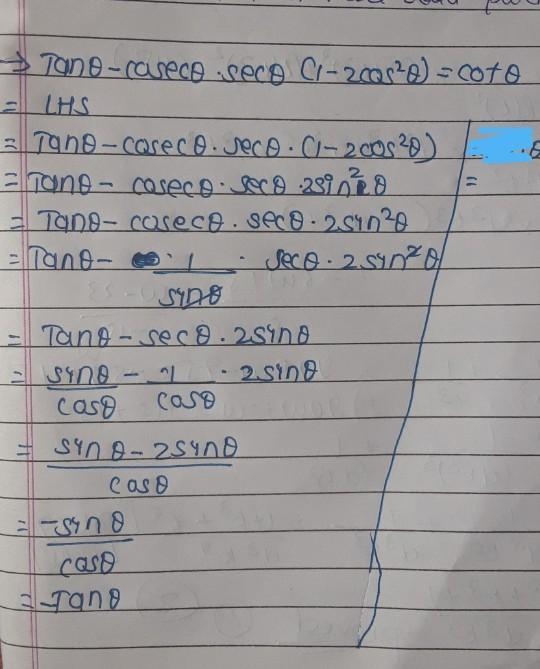 → Tanθ - cosecθ . secθ (1 - 2cos²θ) = cotθ
= LHS
= Tanθ - cosecθ . secθ . (1 - 2cos²θ)
= Tanθ - cosecθ . secθ . 2sin²θ =
= Tanθ - cosecθ . secθ . 2sin²θ
= Tanθ - 1/sinθ . secθ . 2sin²θ
= Tanθ - secθ . 2sinθ
= sinθ/cosθ - 1/cosθ . 2sinθ
= sinθ - 2sinθ/cosθ
= -sinθ/cosθ
= -Tanθ